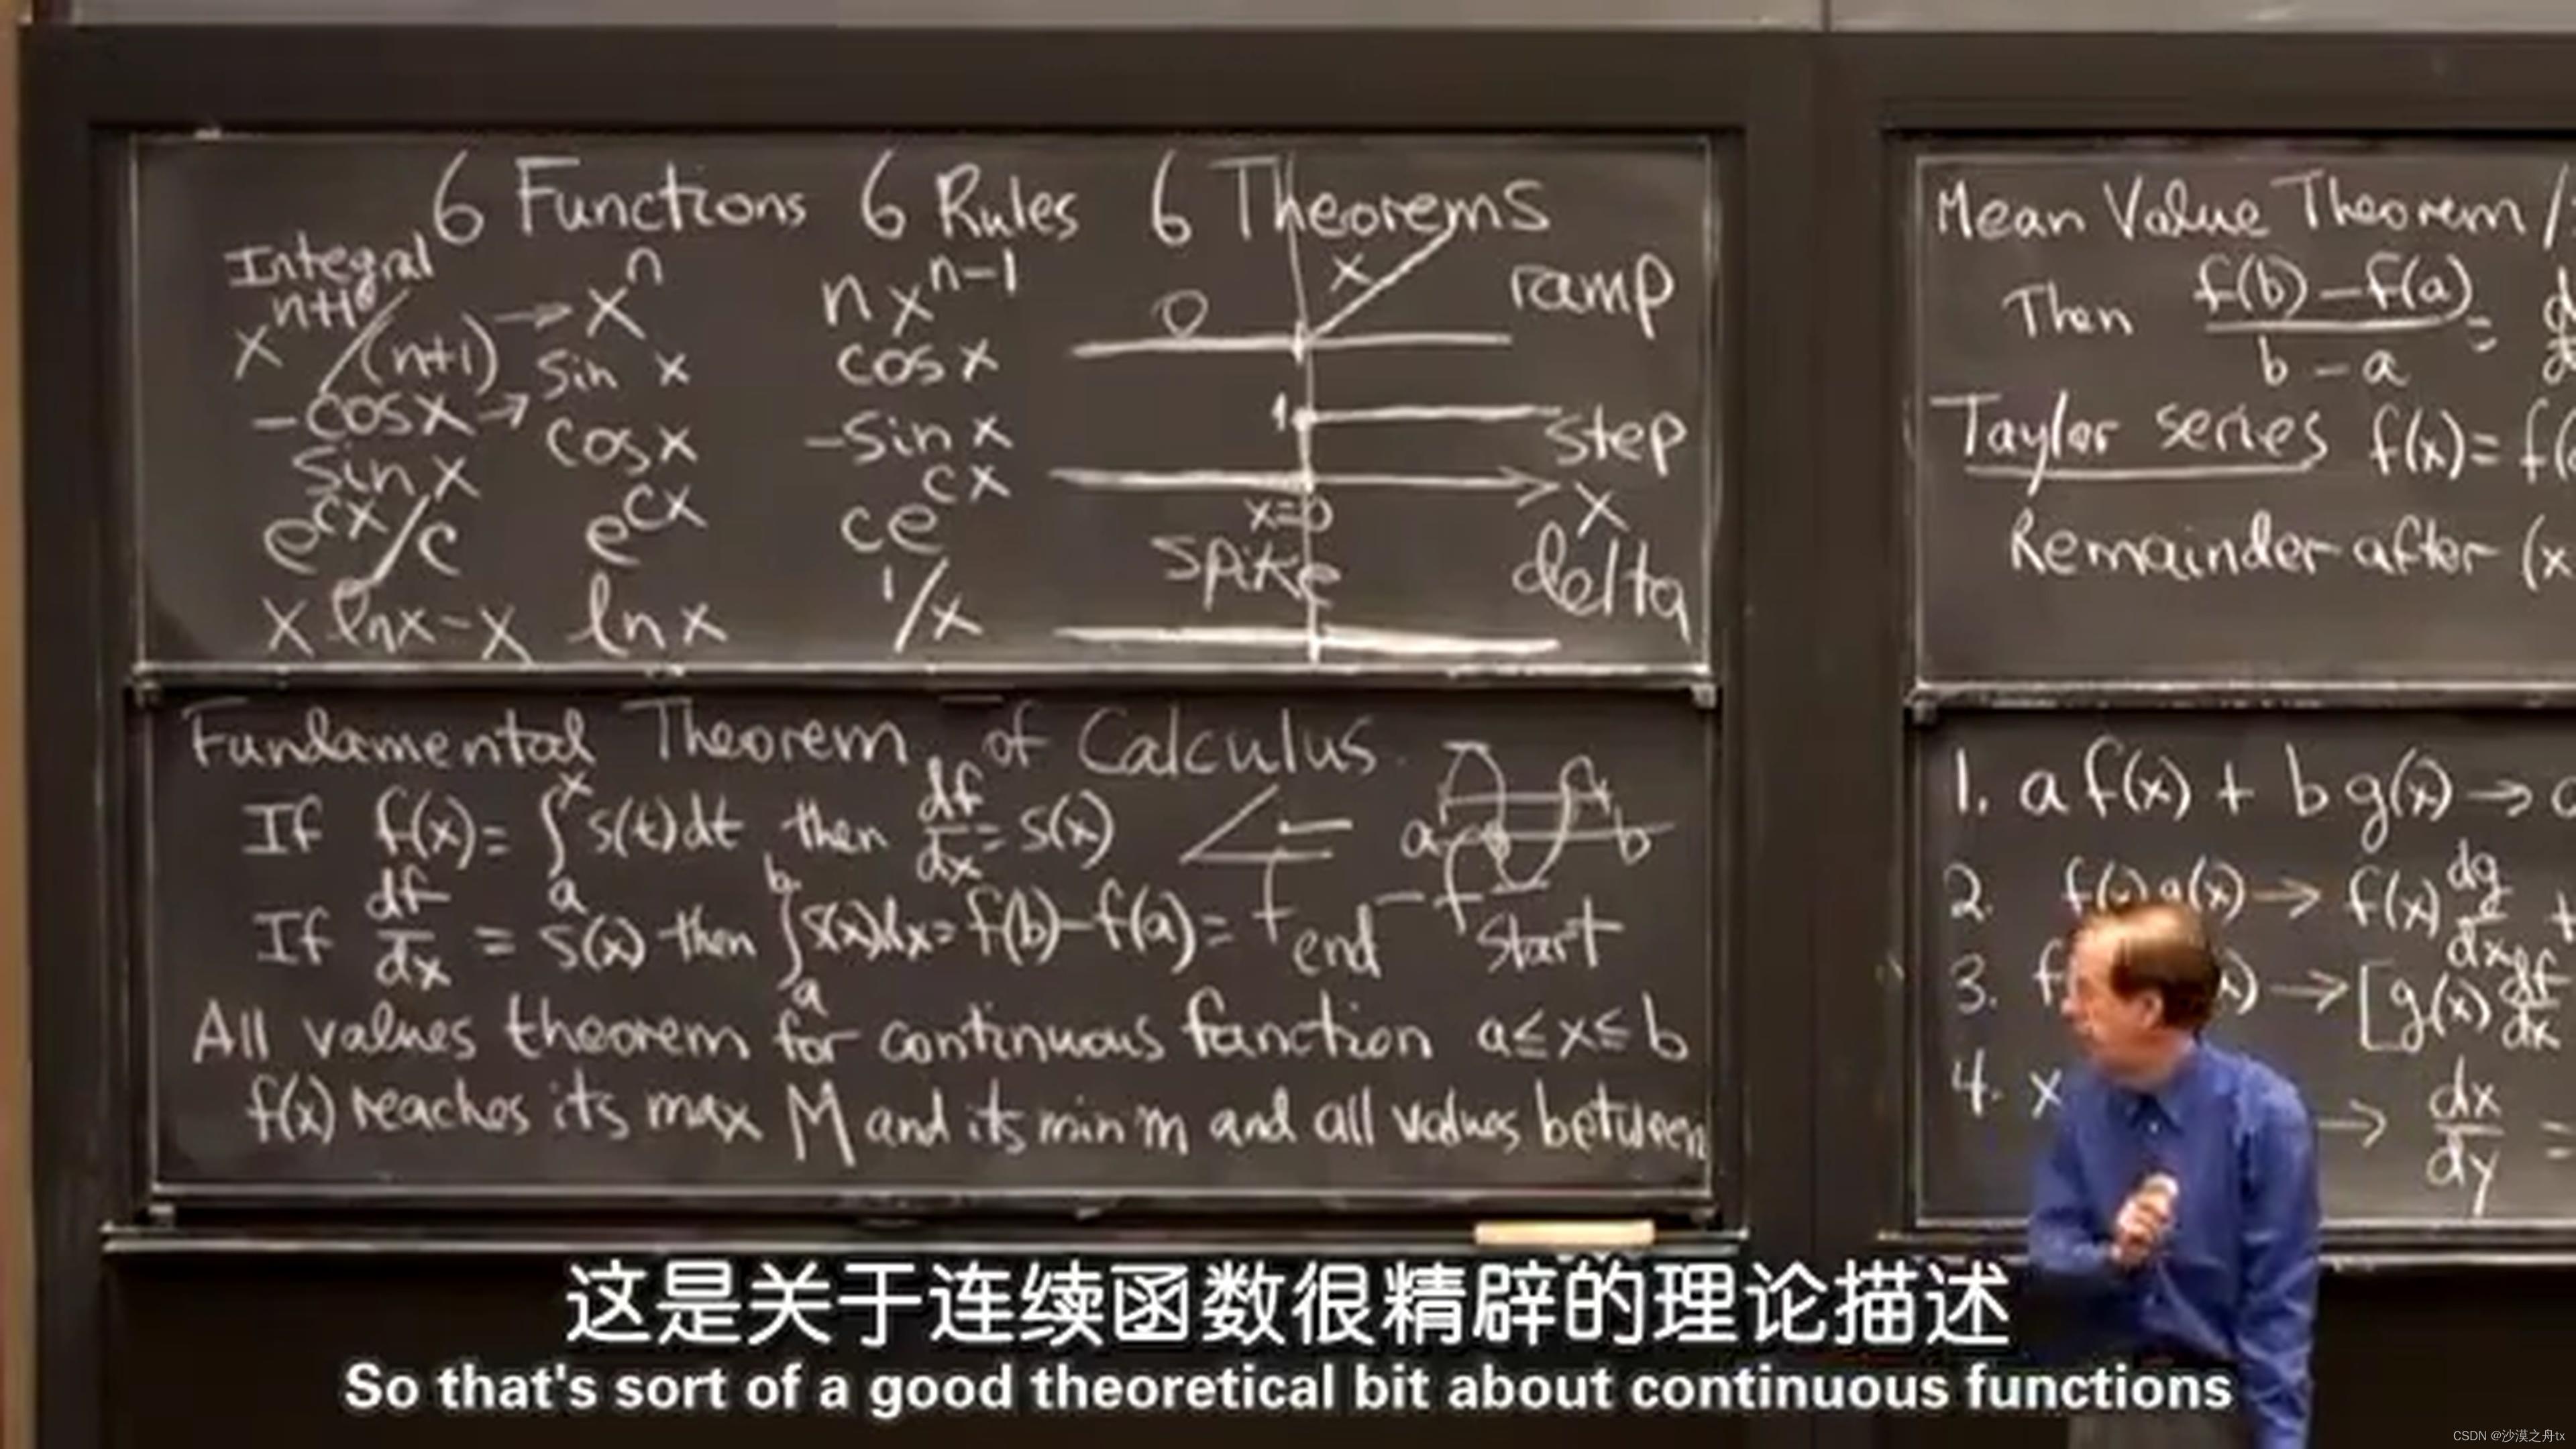 6 Functions 6 Rules 6 Theorems
Integral
x^(n+1)/(n+1) → x^n   n x^(n-1)
-cos x → sin x   cos x
sin x   cos x   -sin x
e^(cx)/c   e^(cx)   ce^(cx)
x ln x - x   ln x   1/x
0 x ramp
1 step
x=0 x
spike delta
Fundamental Theorem of Calculus
If f(x) = ∫_a^x s(t)dt then df/dx = s(x)
a b
If df/dx = s(x) then ∫_a^b s(x)dx = f(b) - f(a) = f end - f start
All values theorem for continuous function a ≤ x ≤ b
f(x) reaches its max M and its min m and all values between
Mean Value Theorem /
Then (f(b) - f(a))/(b - a) =
Taylor series f(x) = f(
Remainder after (x
1. a f(x) + b g(x) →
2. f(x) g(x) → f(x) dg/dx +
3. f → [g(x) df/dx
4. x → dx/dy =
这是关于连续函数很精辟的理论描述
So that's sort of a good theoretical bit about continuous functions
CSDN @沙漠之舟tx